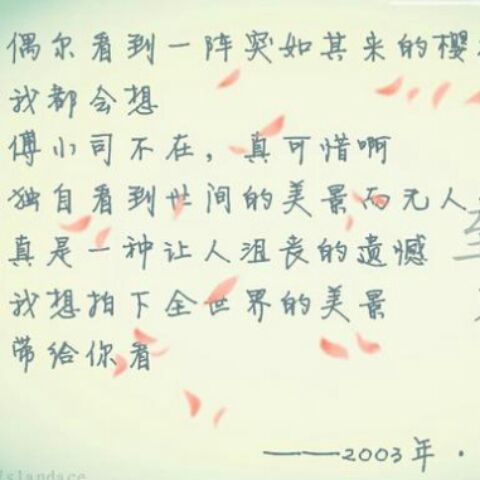 偶尔看到一阵突如其来的樱
我都会想
傅小司不在，真可惜啊
独自看到世间的美景而无人
真是一种让人沮丧的遗憾
我想拍下全世界的美景
带给你看
——2003年·
islandace